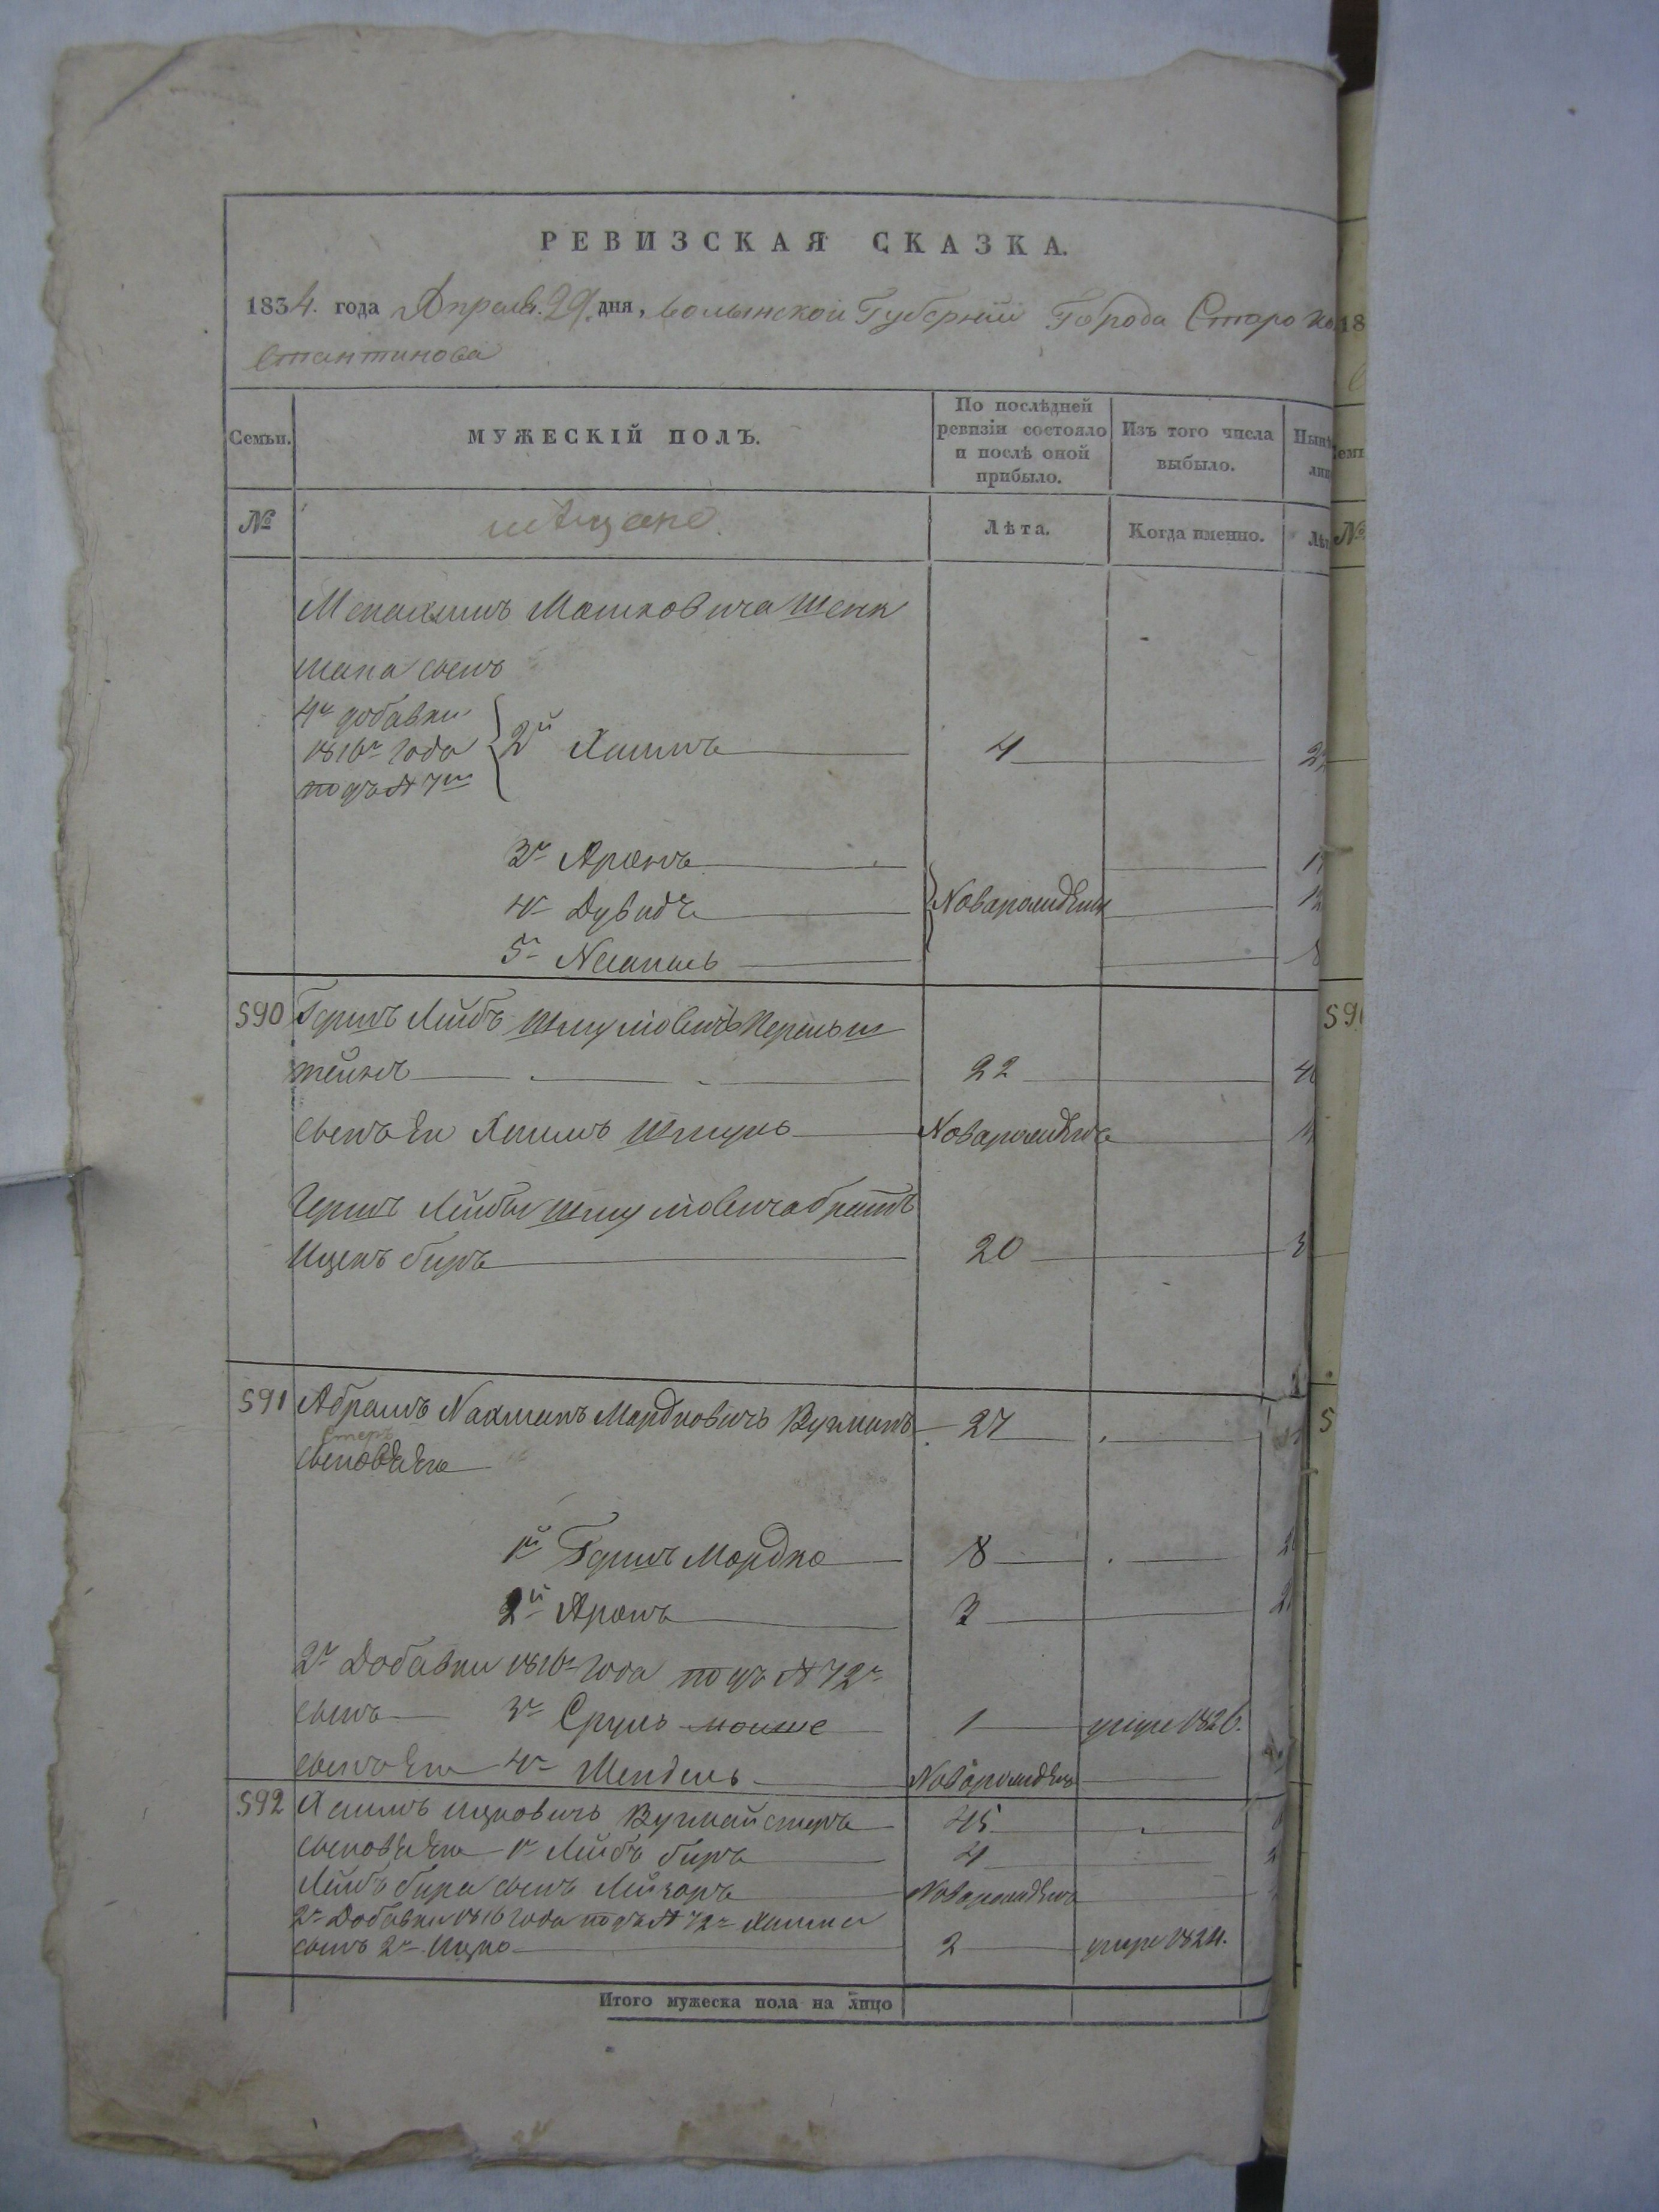 РЕВИЗСКАЯ СКАЗКА.
1834. года Апреля 29. дня, Волынской Губернiи Города Старо Ко
стантинова
Семьи. МУЖЕСКІЙ ПОЛЪ. По послѣдней ревизіи состояло и послѣ оной прибыло. Изъ того числа выбыло. Нынѣ
№ мѣщане. Лѣта. Когда именно. Лѣт
Мошковича Шенк
мана сынъ
4й добавки
1816го года
подъ № 7м
2й Хаимъ 4
3й Аронъ
4й Дувидъ Новарожденн
5й
590 Гершъ Лейбъ Шмулiовичъ Перельш
тейнъ 22
сынъ Ево Хаимъ Шмуль Новарожденъ
Гершъ Лейбы Шмулiовича братъ
Ицекъ беръ 20
591 Абрамъ Нахманъ Мордковичъ 27
сыновья Ево
1й Гершъ Мордко 8
2й Аронъ
2й Добавки 1816го года подъ № 72м
сынъ 3й Сруль мошко 1 умре 1826.
сынъ Ево 4й Мендель Новорожденъ
592 Хаимъ Ицковичъ Вугмайстеръ 45
сыновья Ево 1й Лейбъ беръ 4
Лейбъ бера сынъ Лейзоръ Новарожденъ
2й Добавки 1816 года подъ № 72м Хаима
сынъ 2й Ицко 2 умре 1824.
Итого мужеска пола на лицо